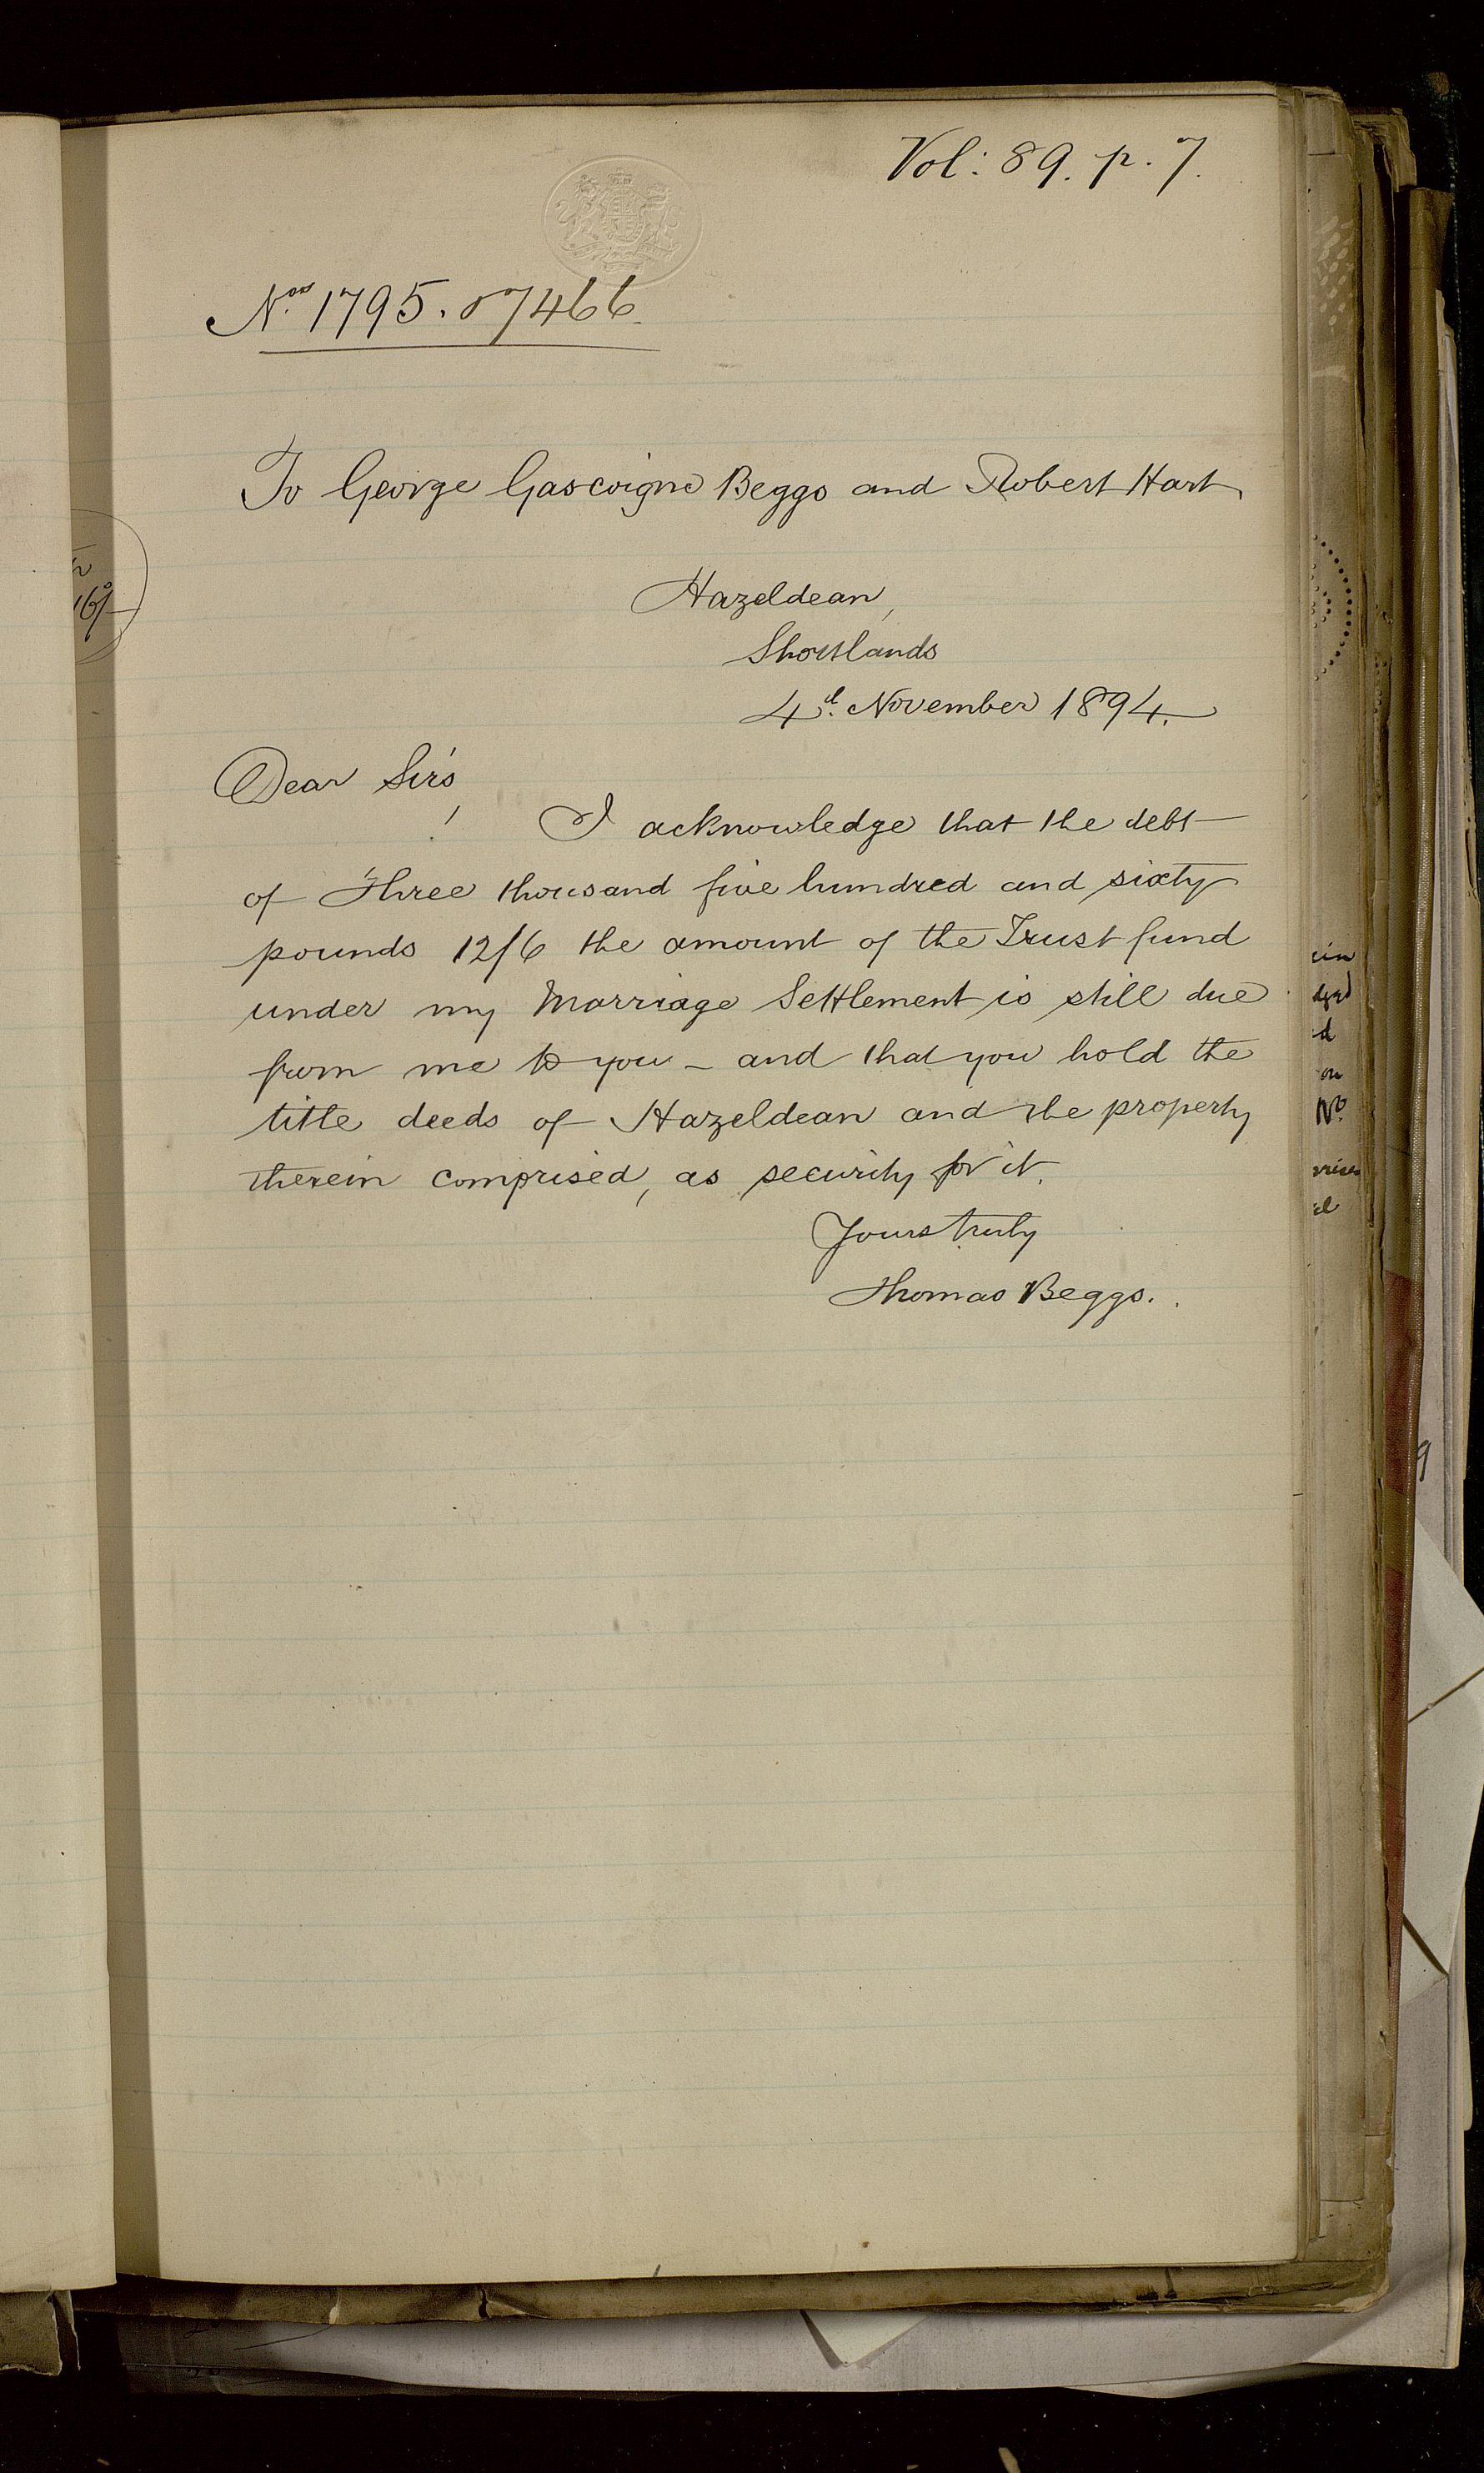 Vol: 89. p. 7.
Nos. 1795. & 7466.
To George Gascoigne Beggs and Robert Hart
Hazeldean,
Shortlands
4th. November 1894.
Dear Sirs,
I acknowledge that the debt
of Three thousand five hundred and sixty
pounds 12/6 the amount of the Trust fund
under my Marriage Settlement is still due
from me to you - and that you hold the
title deeds of Hazeldean and the property
therein comprised, as security for it.
Yours truly
Thomas Beggs.